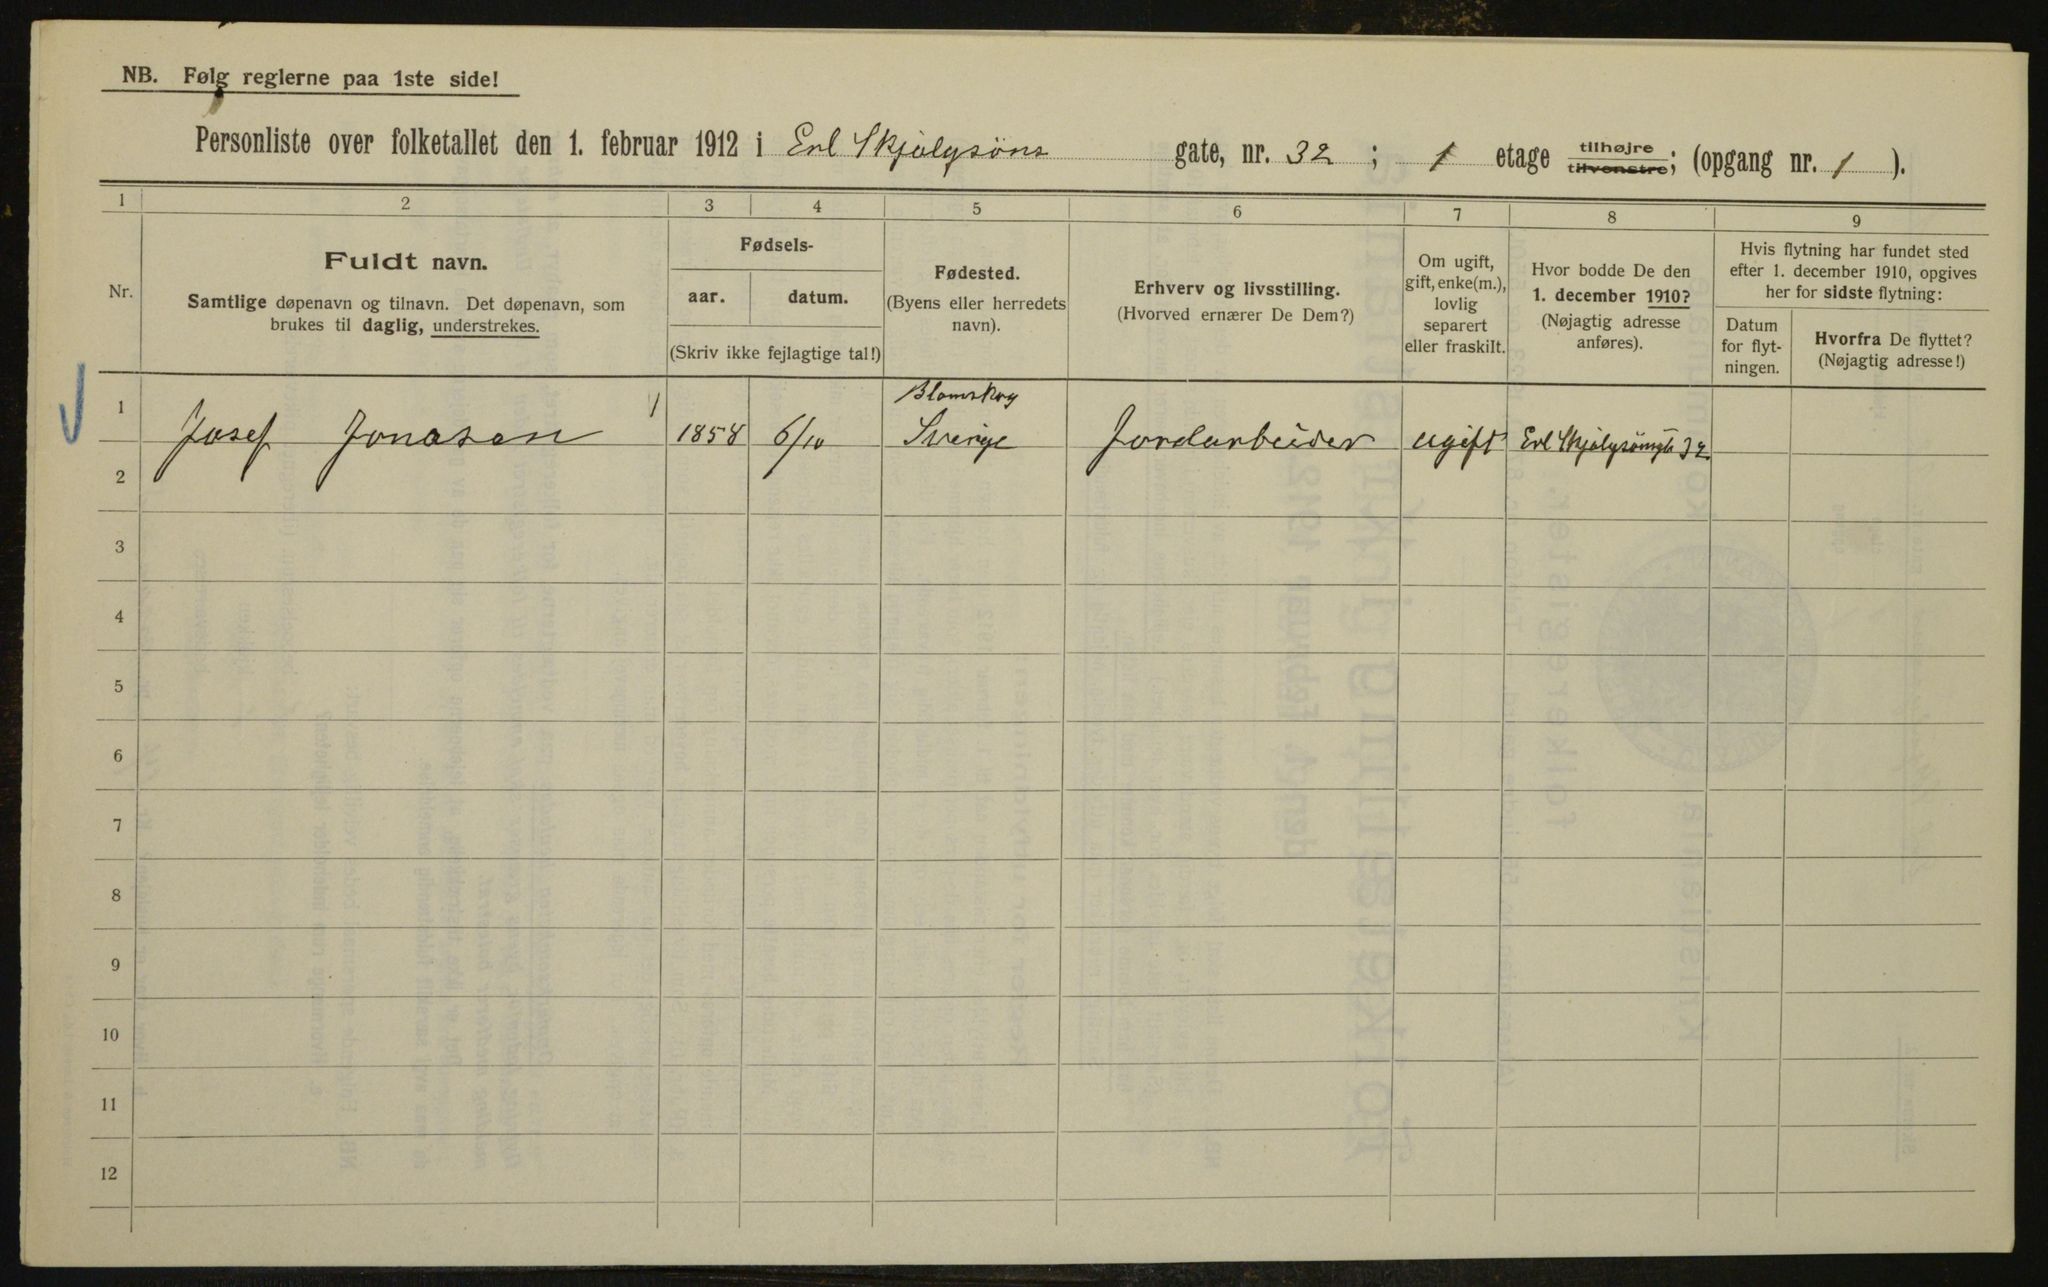 NB. Følg reglerne paa 1ste side!
Personliste over folketallet den 1. februar 1912 i Erl Skjalgsöns gate, nr. 32 ; 1 etage tilhøjre tilvenstre; (opgang nr. 1 ).
1 2 3 4 5 6 7 8 9
Nr.
Fuldt navn.
Samtlige døpenavn og tilnavn. Det døpenavn, som
brukes til daglig, understrekes.
Fødsels-
aar. datum.
(Skriv ikke fejlagtige tal!)
Fødested.
(Byens eller herredets
navn).
Erhverv og livsstilling.
(Hvorved ernærer De Dem?)
Om ugift,
gift, enke(m.),
lovlig
separert
eller fraskilt.
Hvor bodde De den
1. december 1910?
(Nøjagtig adresse
anføres).
Hvis flytning har fundet sted
efter 1. december 1910, opgives
her for sidste flytning:
Datum
for flyt-
ningen.
Hvorfra De flyttet?
(Nøjagtig adresse!)
Blomskog
1 Josef Jonasen 1 1858 6/10 Sverige Jordarbeider ugift Erl Skjalgsönsgt 32
2
3
4
5
6
7
8
9
10
11
12